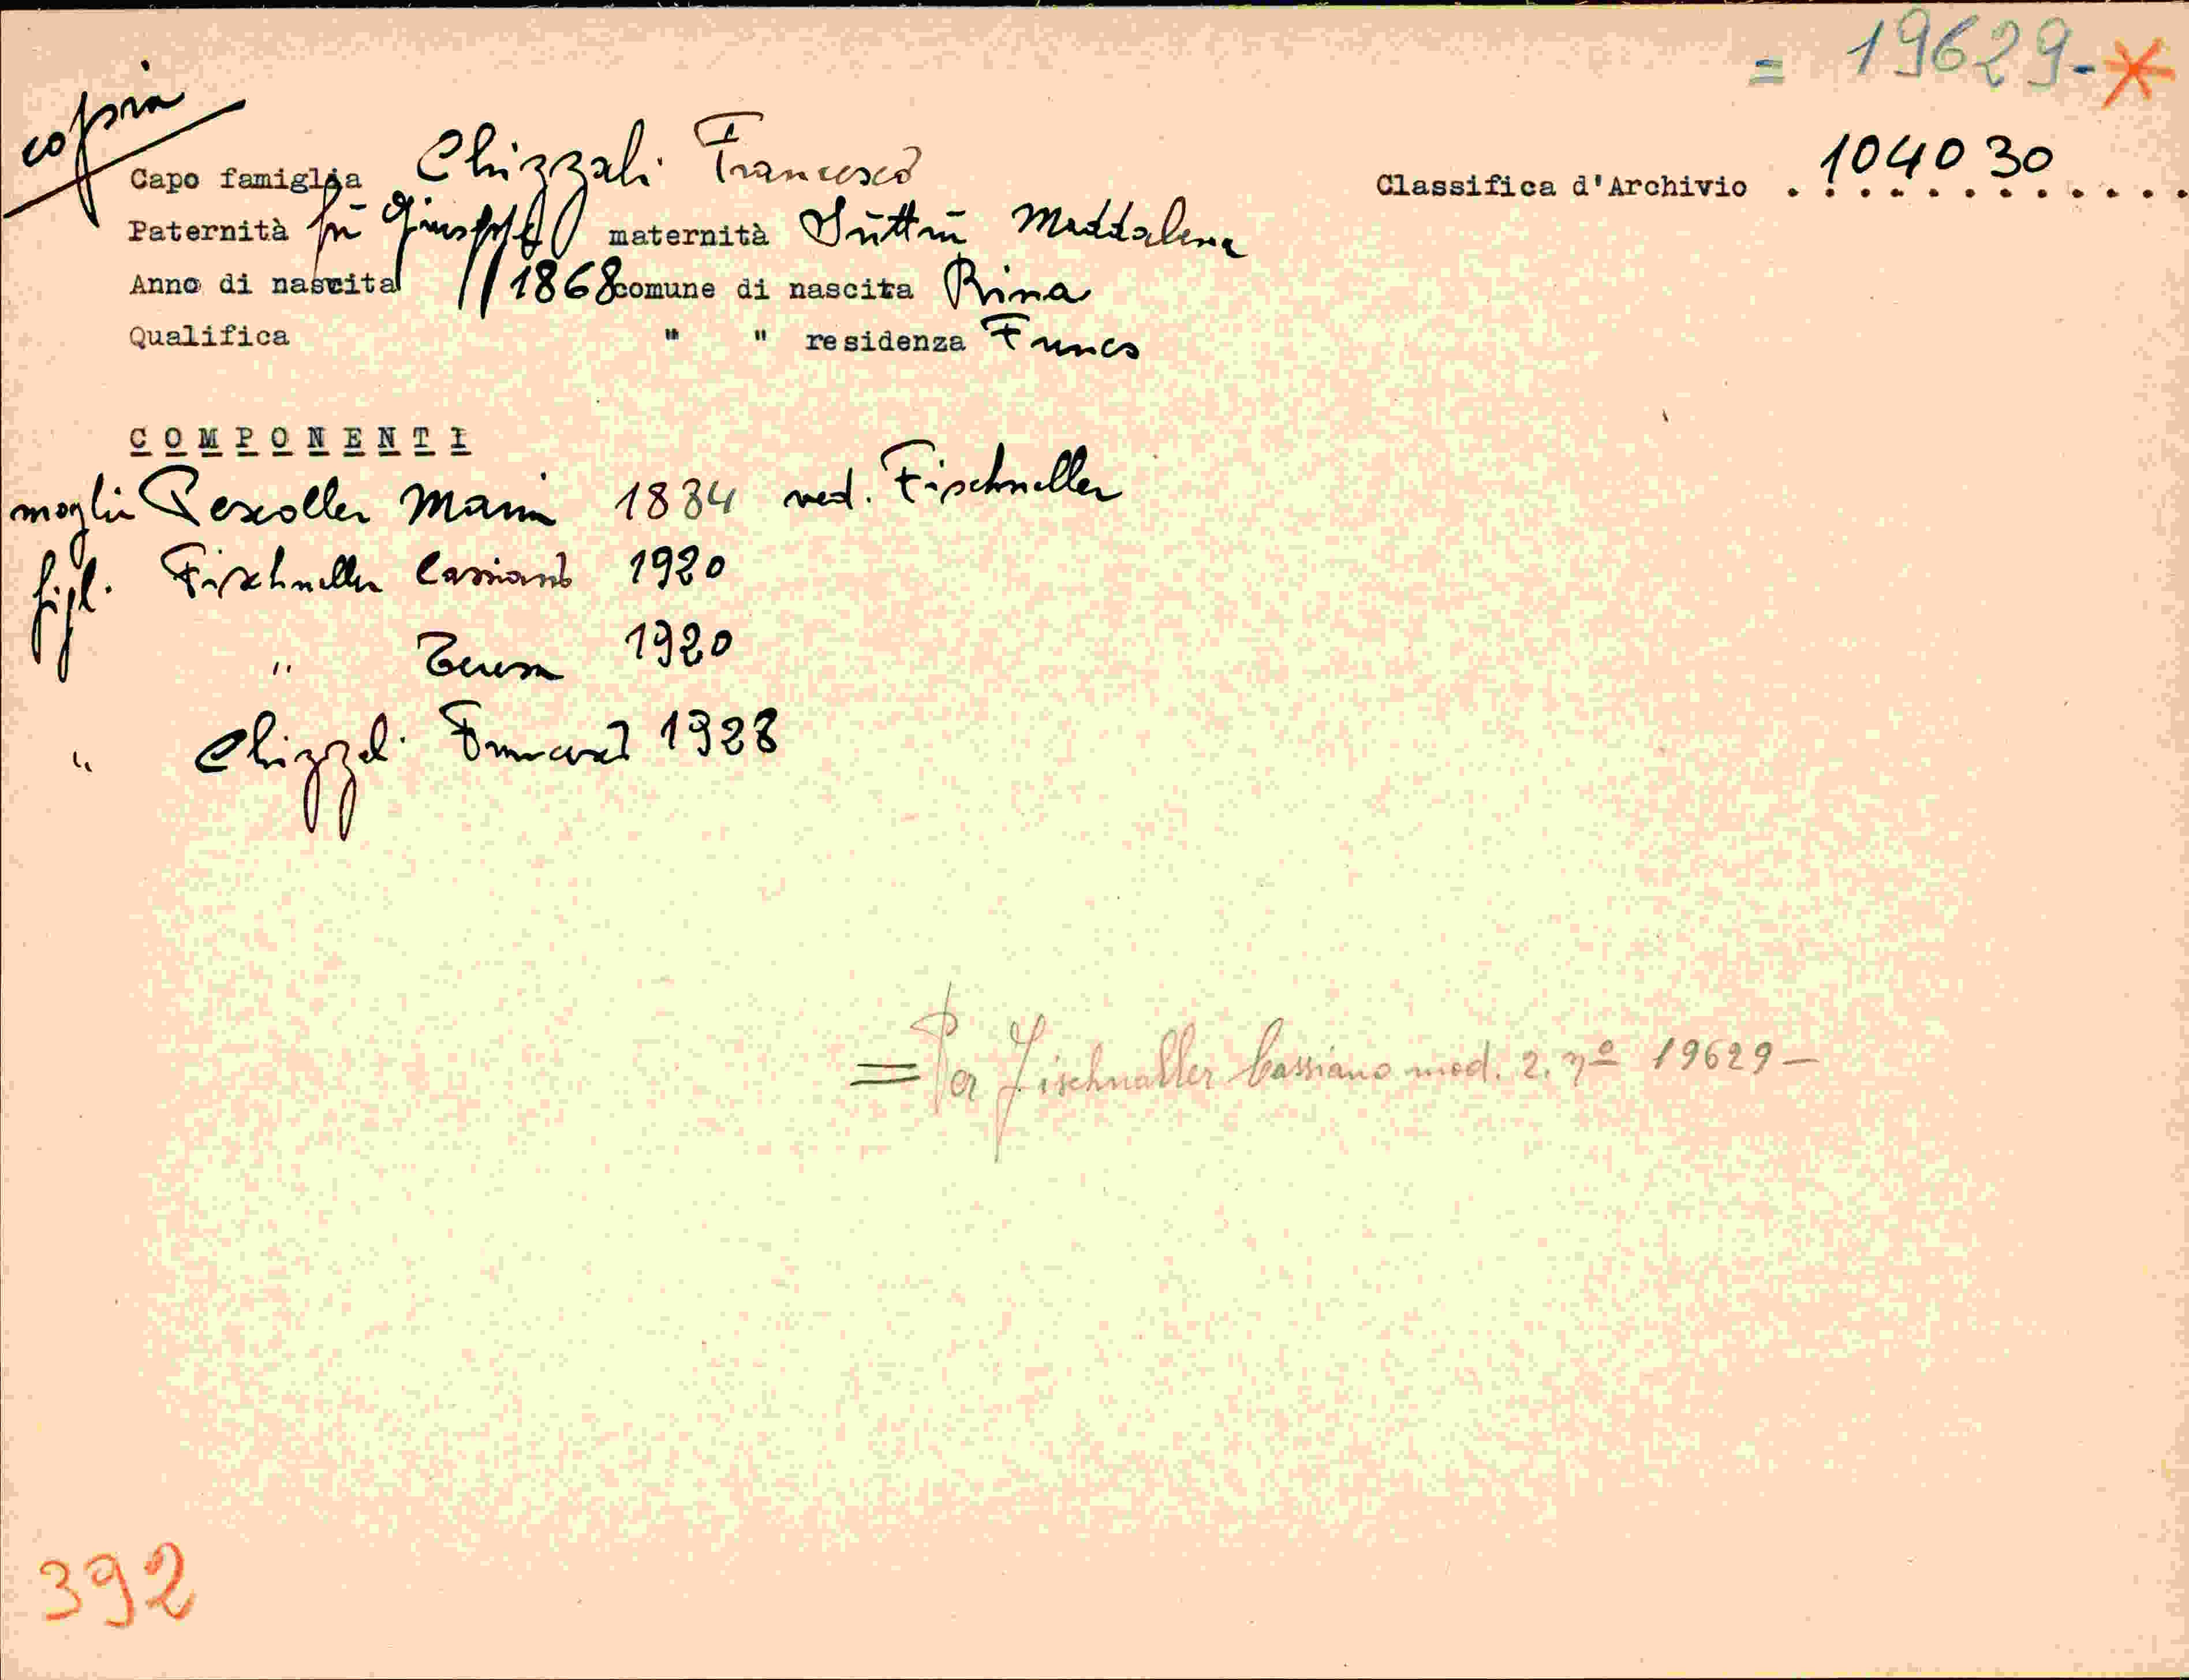 = 19629-*
copia
Capo famiglia Chizzali Francesco Classifica d'Archivio . 104030
Paternità fu Giuseppe maternità Maddalena
Anno di nascita 1868 comune di nascita Rina
Qualifica " " residenza Funes
COMPONENTI
moglie Pescoller Maria 1884 ved. Fischnaller
figl. Fischnaller Cassiano 1920
" Teresa 1920
" Chizzali Francesco 1928
= Per Fischnaller Cassiano mod. 2. nº 19629 -
392